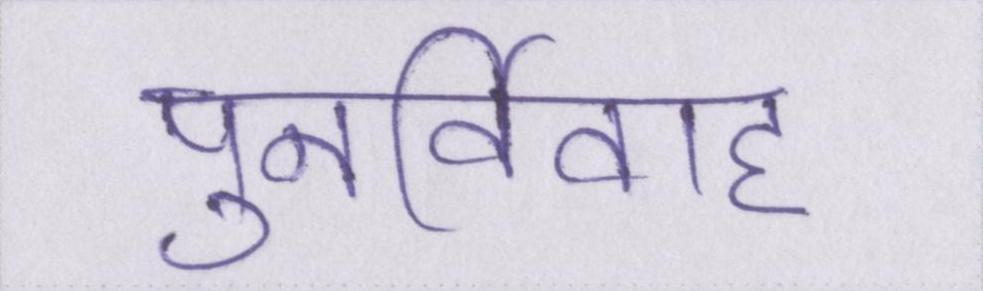 पुनर्विवाह